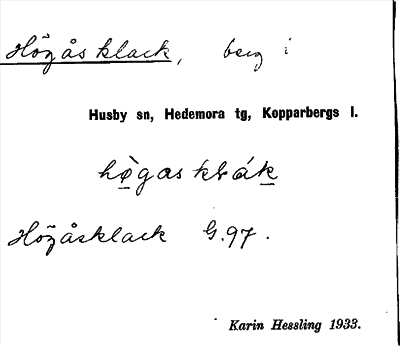 Högåsklack, berg i
Husby sn, Hedemora tg, Kopparbergs l.
Högåsklack G. 97.
Karin Hessling 1933.